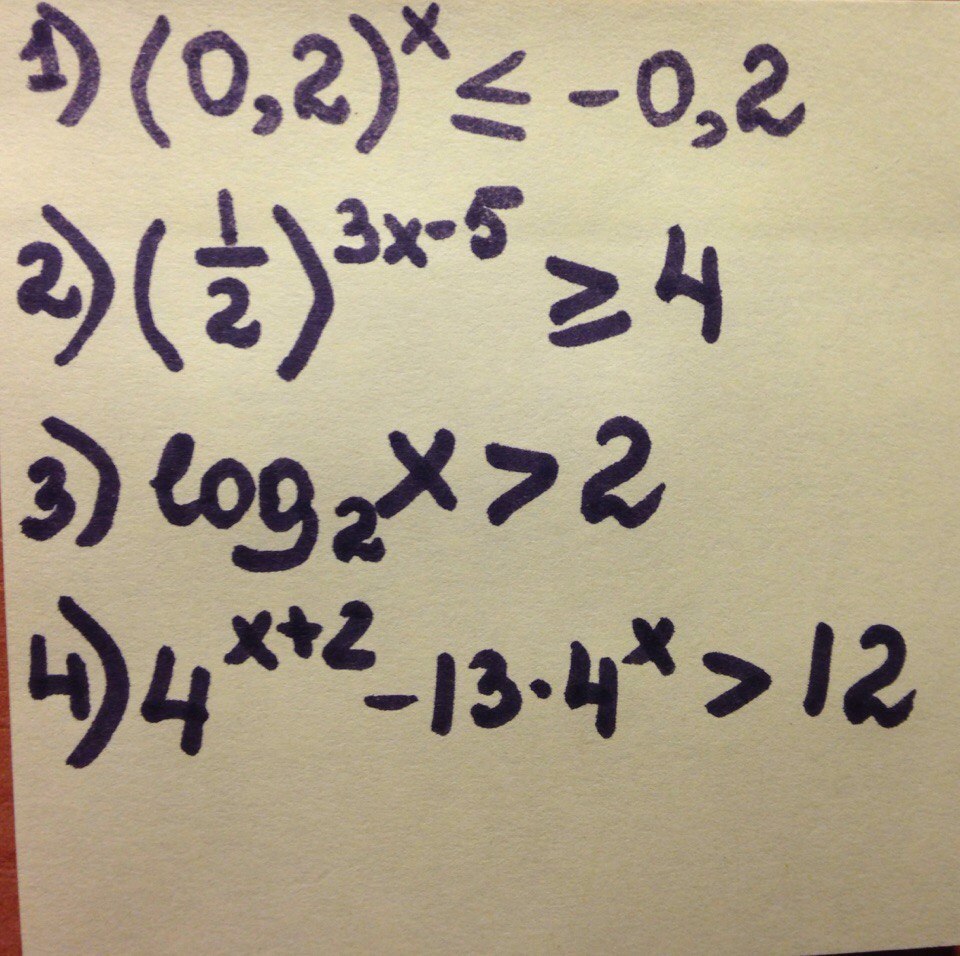 1) (0,2)^x ≤ -0,2
2) (1/2)^{3x-5} ≥ 4
3) log₂x > 2
4) 4^{x+2} - 13·4^x > 12